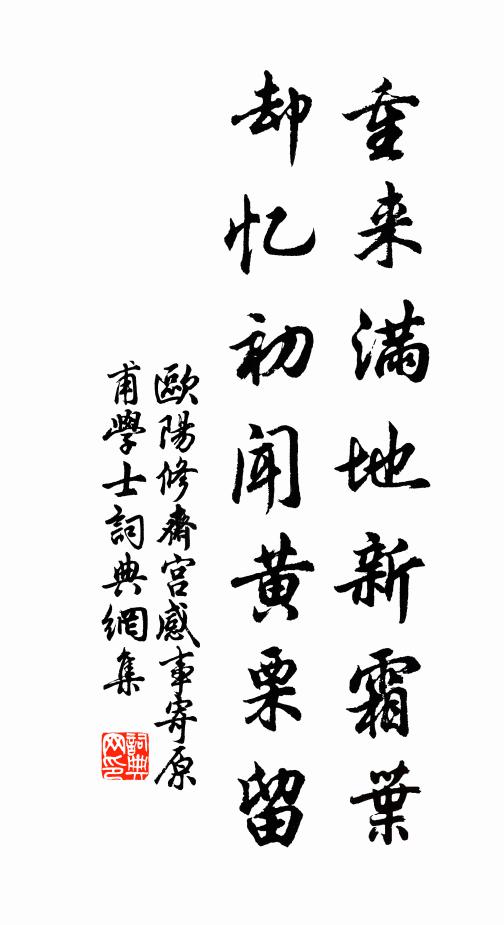 重来滿地新霜葉
却忆初闻黄栗留
歐陽修齋宫感事寄原
甫學士詞典網集
詞典网印